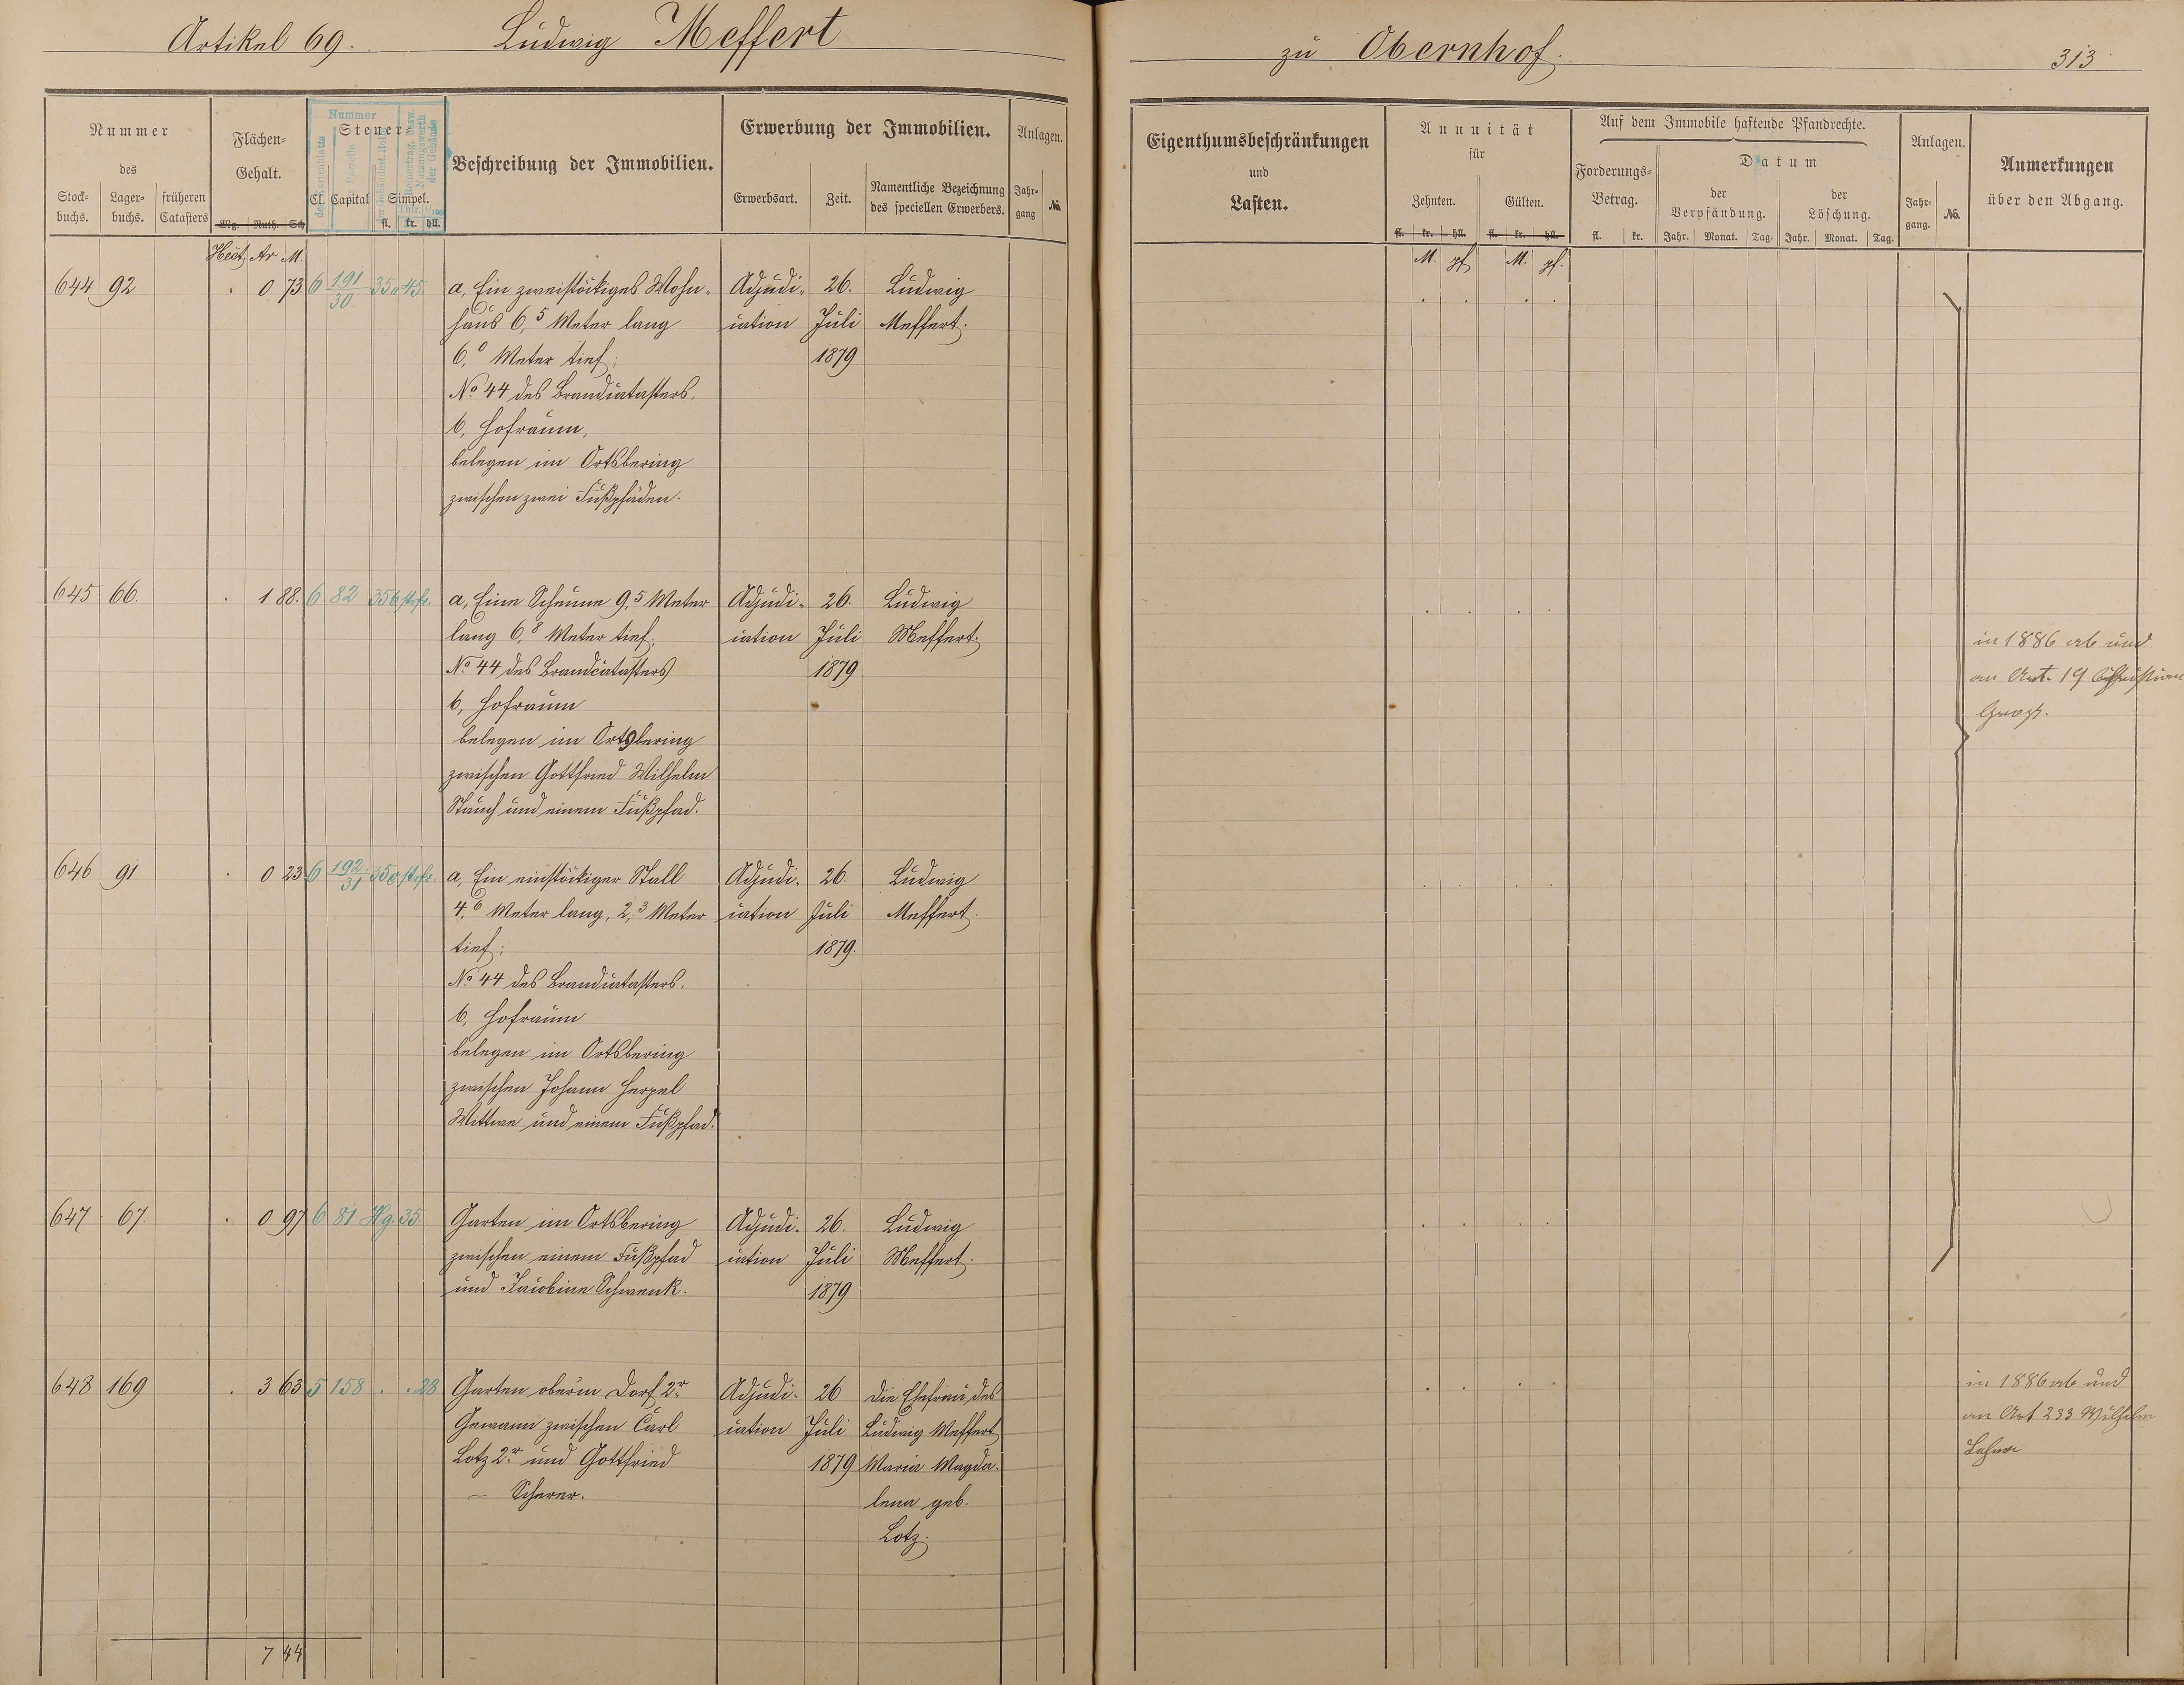 Artikel 69. Ludwig Meffert
zu Obernhof. 313
Nummer
des
Stock-
buchs.
Lager-
buchs.
früheren
Catasters
Flächen-
Gehalt.
Mg. Ruth. Sch
Steuer
Cl. Capital Simpel.
fl. kr. hll.
Nummer
des Kartenblatts
Parzelle
Beschreibung der Immobilien.
Erwerbung der Immobilien.
Erwerbsart. Zeit.
Namentliche Bezeichnung
des speciellen Erwerbers.
Anlagen.
Jahr-
gang
No.
Eigenthumsbeschränkungen
und
Lasten.
Annuität
für
Zehnten. Gülten.
fl. kr. hll. fl. kr. hll.
Auf dem Immobile haftende Pfandrechte.
Forderungs-
Betrag.
fl. kr.
Datum
der
Verpfändung.
der
Löschung.
Jahr. Monat. Tag. Jahr. Monat. Tag.
Anlagen.
Jahr-
gang.
No.
Anmerkungen
über den Abgang.
Hect. Ar M.
M. pf. M. pf.
644 92 . 0 73 6 191/30 35a 45 a, Ein zweistöckiges Wohn- Adjudi- 26. Ludwig
haus 6,5 Meter lang cation Juli Meffert.
6,0 Meter tief; 1879
No 44 des Brandcatasters.
b, Hofraum,
belegen im Ortsbering
zwischen zwei Fußpfäden.
645 66. . 1 88. 6 82 35b stfr. a, Eine Scheune 9,5 Meter Adjudi- 26. Ludwig
lang 6,8 Meter tief. cation Juli Meffert.
No 44 des Brandcatasters 1879
b, Hofraum
belegen im Ortsbering
zwischen Gottfried Wilhelm
Stauch und einem Fußpfad.
in 1886 ab und
an Art. 19 Christian
646 91 . 0 23 6 192/31 35c stfr. a, Ein einstöckiger Stall Adjudi- 26. Ludwig
4,6 Meter lang, 2,3 Meter cation Juli Meffert.
tief; 1879.
No 44 des Brandcatasters.
b, Hofraum
belegen im Ortsbering
zwischen Johann Herpel
Wittwe und einem Fußpfad.
647 67. . 0 97 6 81 Hg. 35 Garten im Ortsbering Adjudi- 26. Ludwig
zwischen einem Fußpfad cation Juli Meffert.
und Jacobine Schwenk. 1879
648 169 . 3 63 5 158 . . 28 Garten oberm Dorf 2r Adjudi- 26 Die Ehefrau des
Gewann zwischen Carl cation Juli Ludwig Meffert
Lotz 2r und Gottfried 1879 Maria Magda-
– Scherer. lena geb.
Lotz.
in 1886 ab und
an Art 233 Wilhelm
7 44